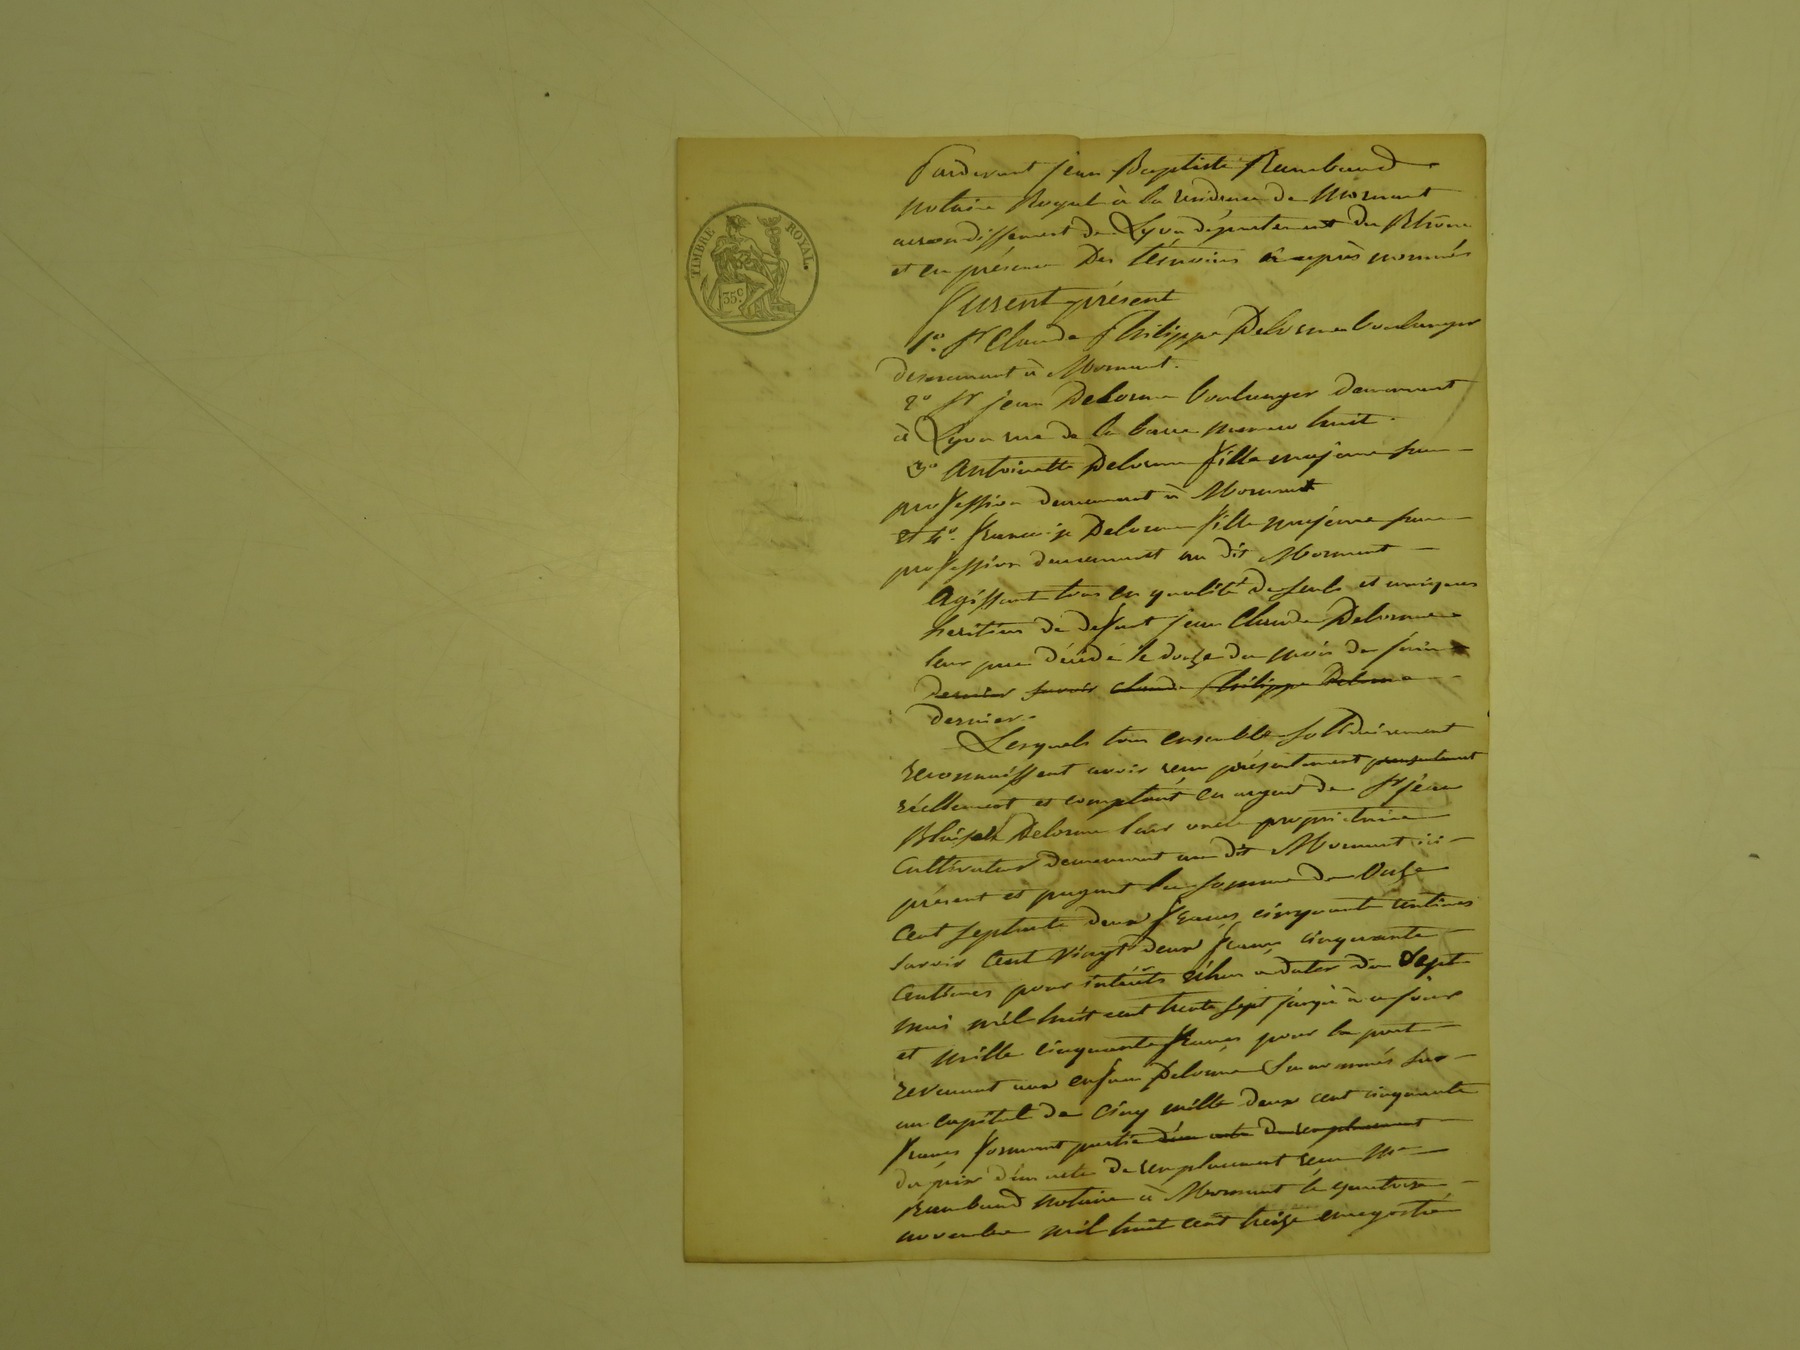 TIMBRE ROYAL.
35c.
Pardevant jean Baptiste Rambaud
notaire Royal à la residence de Mornant
arrondissement de Lyon département du Rhône
et en présence Des témoins ci-après nommés
furent présent
1º. Sr Claude Philippe Delorme boulanger
demeurant à Mornant.
2º Sr jean Delorme boulanger demeurant
à Lyon rue de la barre numero huit.
3º Antoinette Delorme fille majeure sans
profession demeurant à Mornant
et 4º. francoise Delorme fille majeure sans
profession demeurant au dit Mornant
Agissant tous en qualité de seuls et uniques
heritiers de defunt jean Claude Delorme
leur pere décédé le douze du mois de juin
dernier savoir claude Philippe Delorme
dernier.
Lesquels tous ensemble solidairement
reconnaissent avoir recu présentement presentement
réellement et comptant en argent de Sr jean
Delorme leur oncle propriétaire
cultivateur demeurant au dit Mornant ici
présent et payant la somme de Onze
cent septante deux francs cinquante centimes
savoir Cent vingt deux francs cinquante
centimes pour intérêts échus à dater du Sept
mai mil huit cent trente sept jusqu'à ce jour
et mille cinquante francs pour la part
revenant aux enfans Delorme susnommés sur
un capital de cinq mille deux cent cinquante
francs formant partie d'un acte de remplacement
du prix d'un acte de remplacement recu Me
Rambaud notaire à Mornant le quatorze
novembre mil huit cent treize enregistré